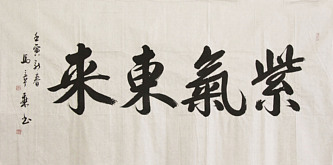 紫氣東來
壬寅新春
馬
書